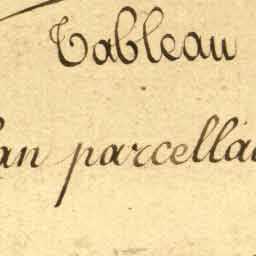 Tableau
an parcella